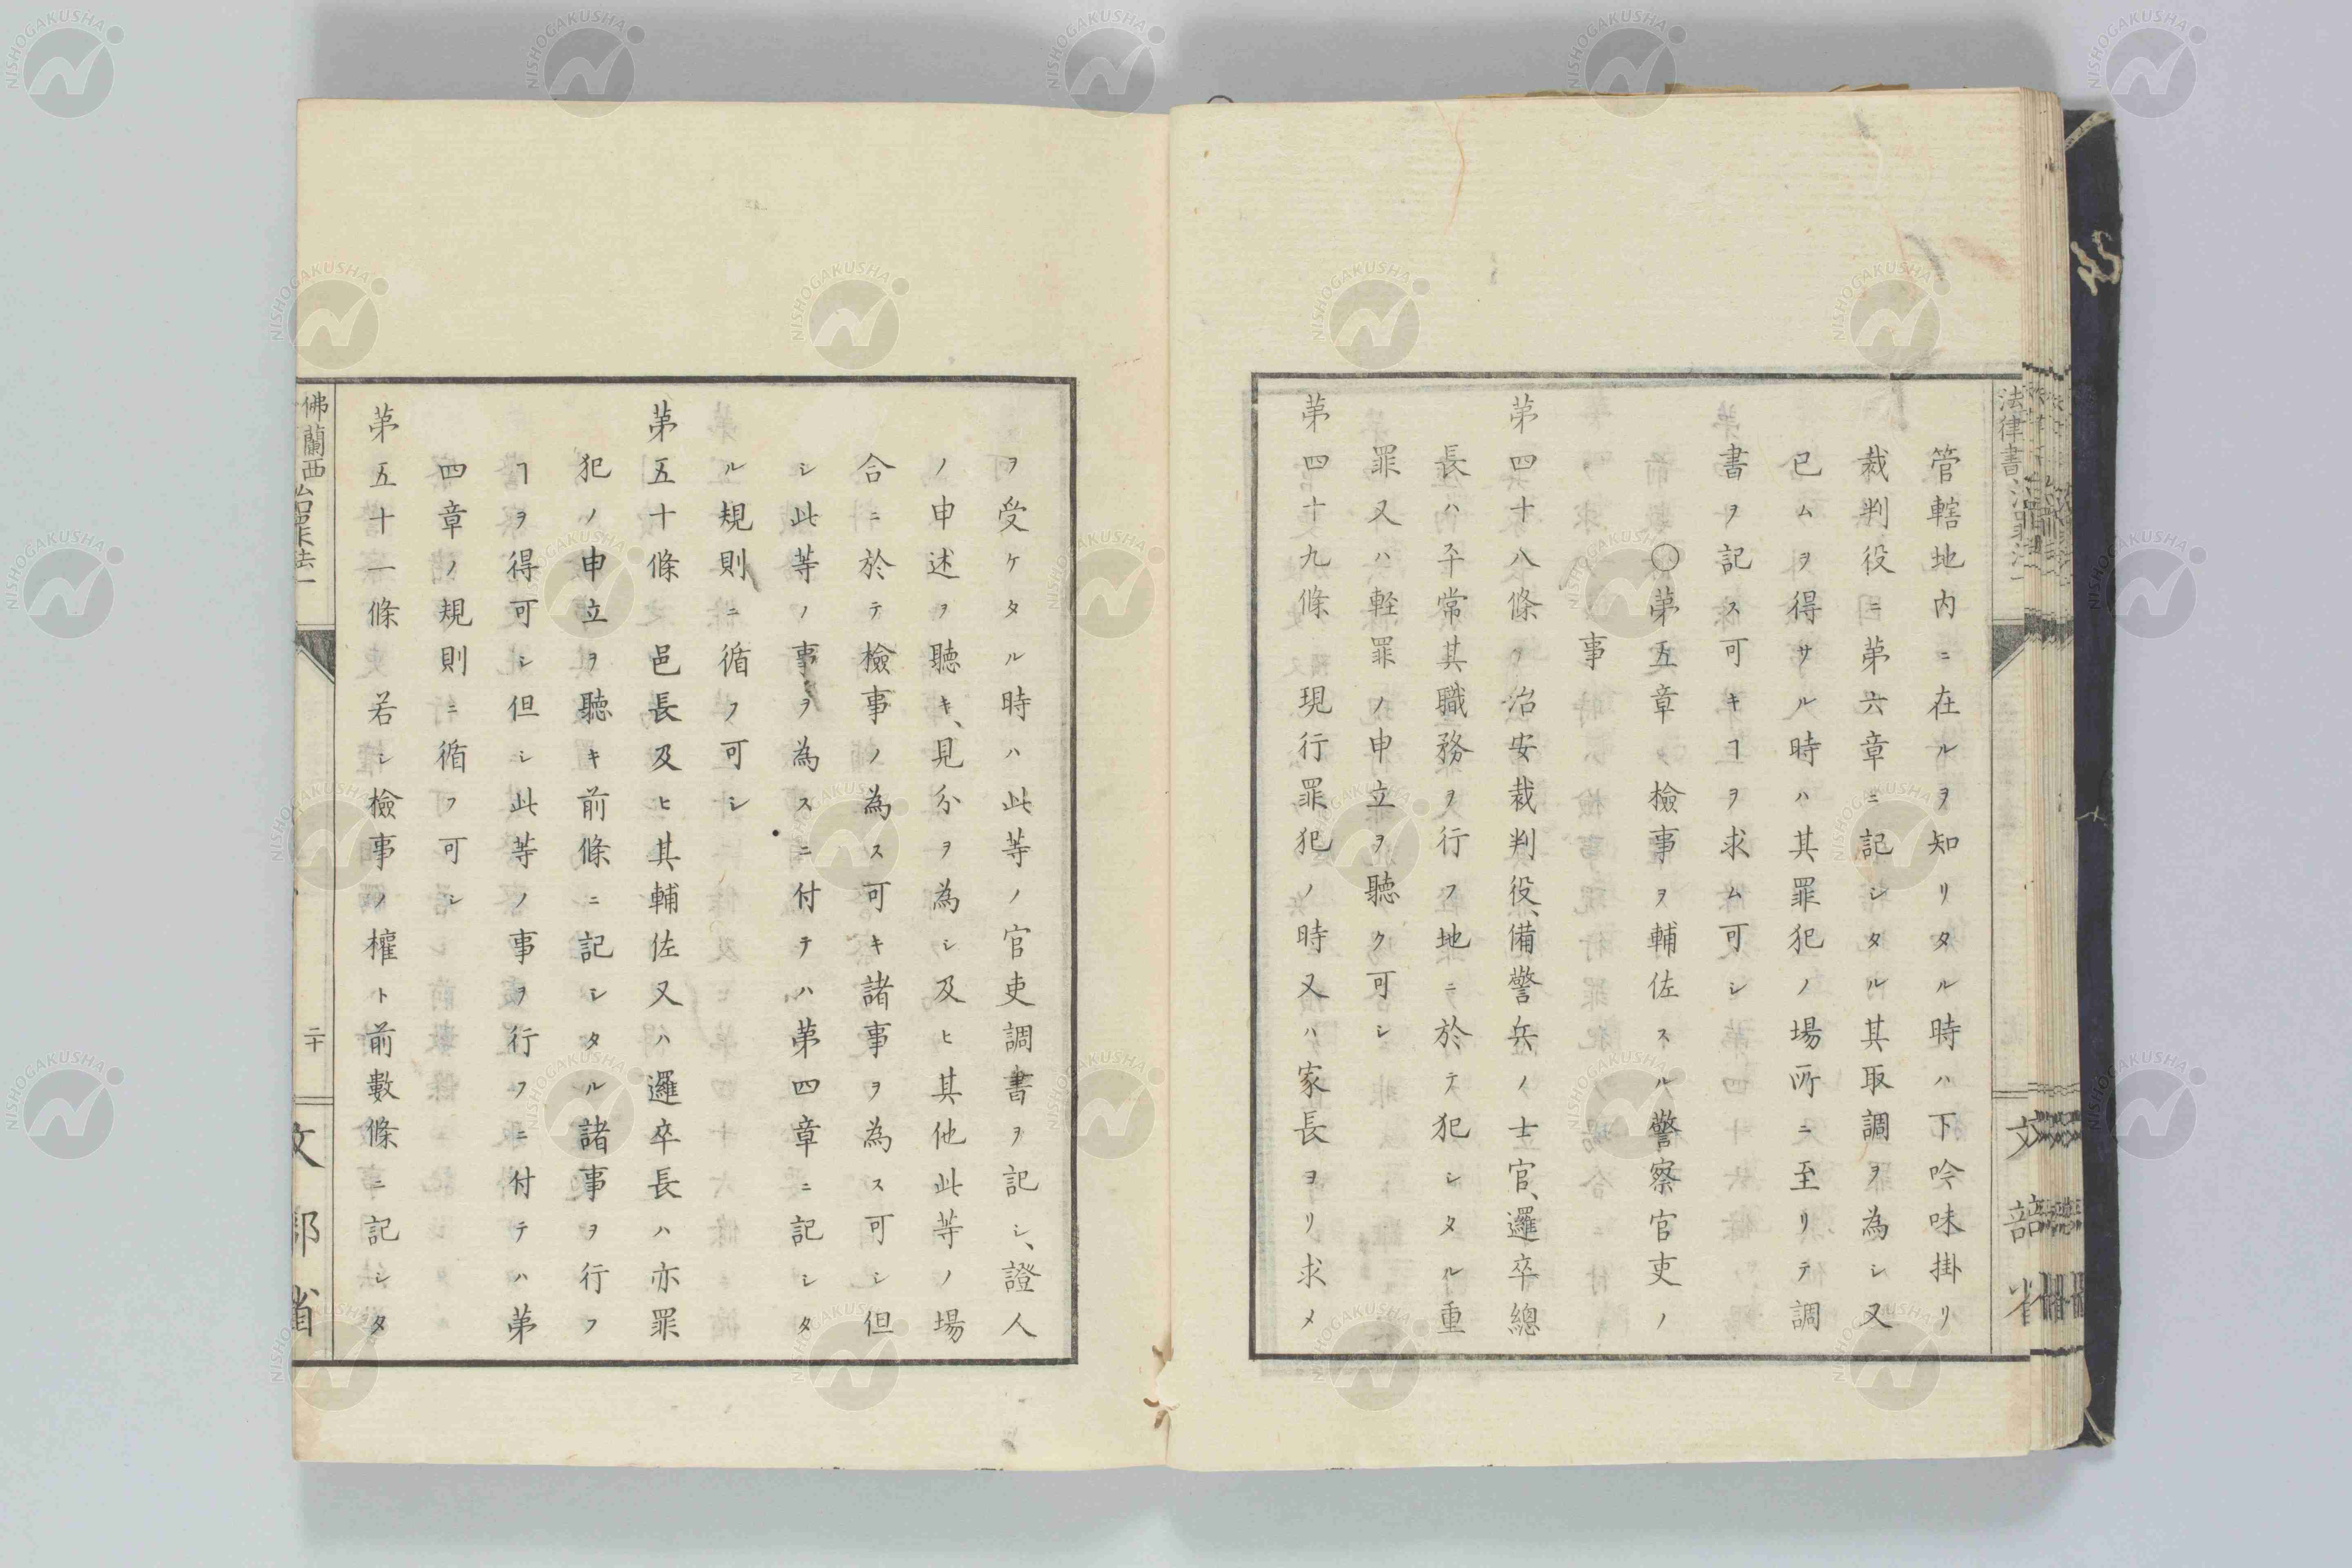 管轄地内ニ在ルヲ知リタル時ハ下吟味掛リ
裁判役ニ第六章ニ記シタル其取調ヲ為シ又
已ムヲ得サル時ハ其罪犯ノ場所ニ至リテ調
書ヲ記ス可キヿヲ求ム可シ
〇第五章 檢事ヲ輔佐スル警察官吏ノ
事
第四十八條 治安裁判役、備警兵ノ士官、邏卒總
長ハ平常其職務ヲ行フ地ニ於テ犯シタル重
罪又ハ軽罪ノ申立ヲ聽ク可シ
第四十九條 現行罪犯ノ時又ハ家長ヨリ求メ
ヲ受ケタル時ハ此等ノ官吏調書ヲ記シ、證人
ノ申述ヲ聽キ、見分ヲ為シ及ヒ其他此等ノ場
合ニ於テ檢事ノ為ス可キ諸事ヲ為ス可シ但
シ此等ノ事ヲ為スニ付テハ第四章ニ記シタ
ル規則ニ循フ可シ
第五十條 邑長及ヒ其輔佐又ハ邏卒長ハ亦罪
犯ノ申立ヲ聽キ前條ニ記シタル諸事ヲ行フ
ヿヲ得可シ但シ此等ノ事ヲ行フニ付テハ第
四章ノ規則ニ循フ可シ
第五十一條 若シ檢事ノ權ト前數條ニ記シタ
佛蘭西治罪法一
二十
文部省
NISHOGAKUSHA